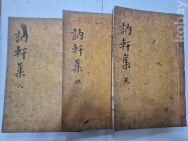 訥軒集 天
訥軒集 地
訥軒集 人
Kobay